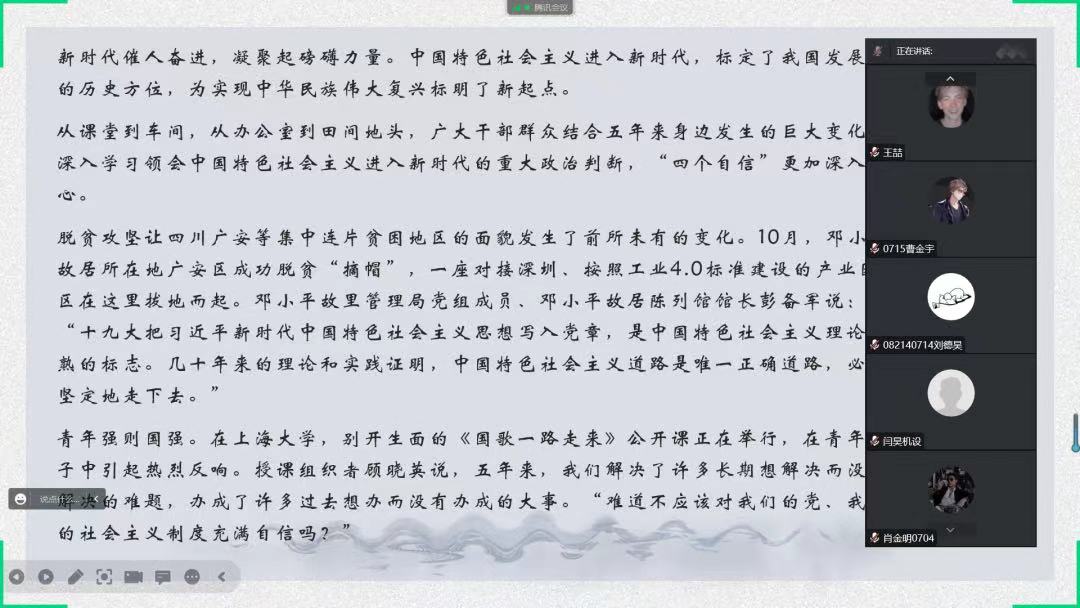 腾讯会议
新时代催人奋进，凝聚起磅礴力量。中国特色社会主义进入新时代，标定了我国发展
的历史方位，为实现中华民族伟大复兴标明了新起点。
从课堂到车间，从办公室到田间地头，广大干部群众结合五年来身边发生的巨大变化
深入学习领会中国特色社会主义进入新时代的重大政治判断，“四个自信”更加深入
心。
脱贫攻坚让四川广安等集中连片贫困地区的面貌发生了前所未有的变化。10月，邓小
故居所在地广安区成功脱贫“摘帽”，一座对接深圳、按照工业4.0标准建设的产业
区在这里拔地而起。邓小平故里管理局党组成员、邓小平故居陈列馆馆长彭备军说：
“十九大把习近平新时代中国特色社会主义思想写入党章，是中国特色社会主义理论
熟的标志。几十年来的理论和实践证明，中国特色社会主义道路是唯一正确道路，必
坚定地走下去。”
青年强则国强。在上海大学，别开生面的《国歌一路走来》公开课正在举行，在青年
子中引起热烈反响。授课组织者顾晓英说，五年来，我们解决了许多长期想解决而没
解决的难题，办成了许多过去想办而没有办成的大事。“难道不应该对我们的党、我
的社会主义制度充满自信吗？”
说点什么...
正在讲话:
王喆
0715曹金宇
082140714刘德昊
闫昊机设
肖金明0704